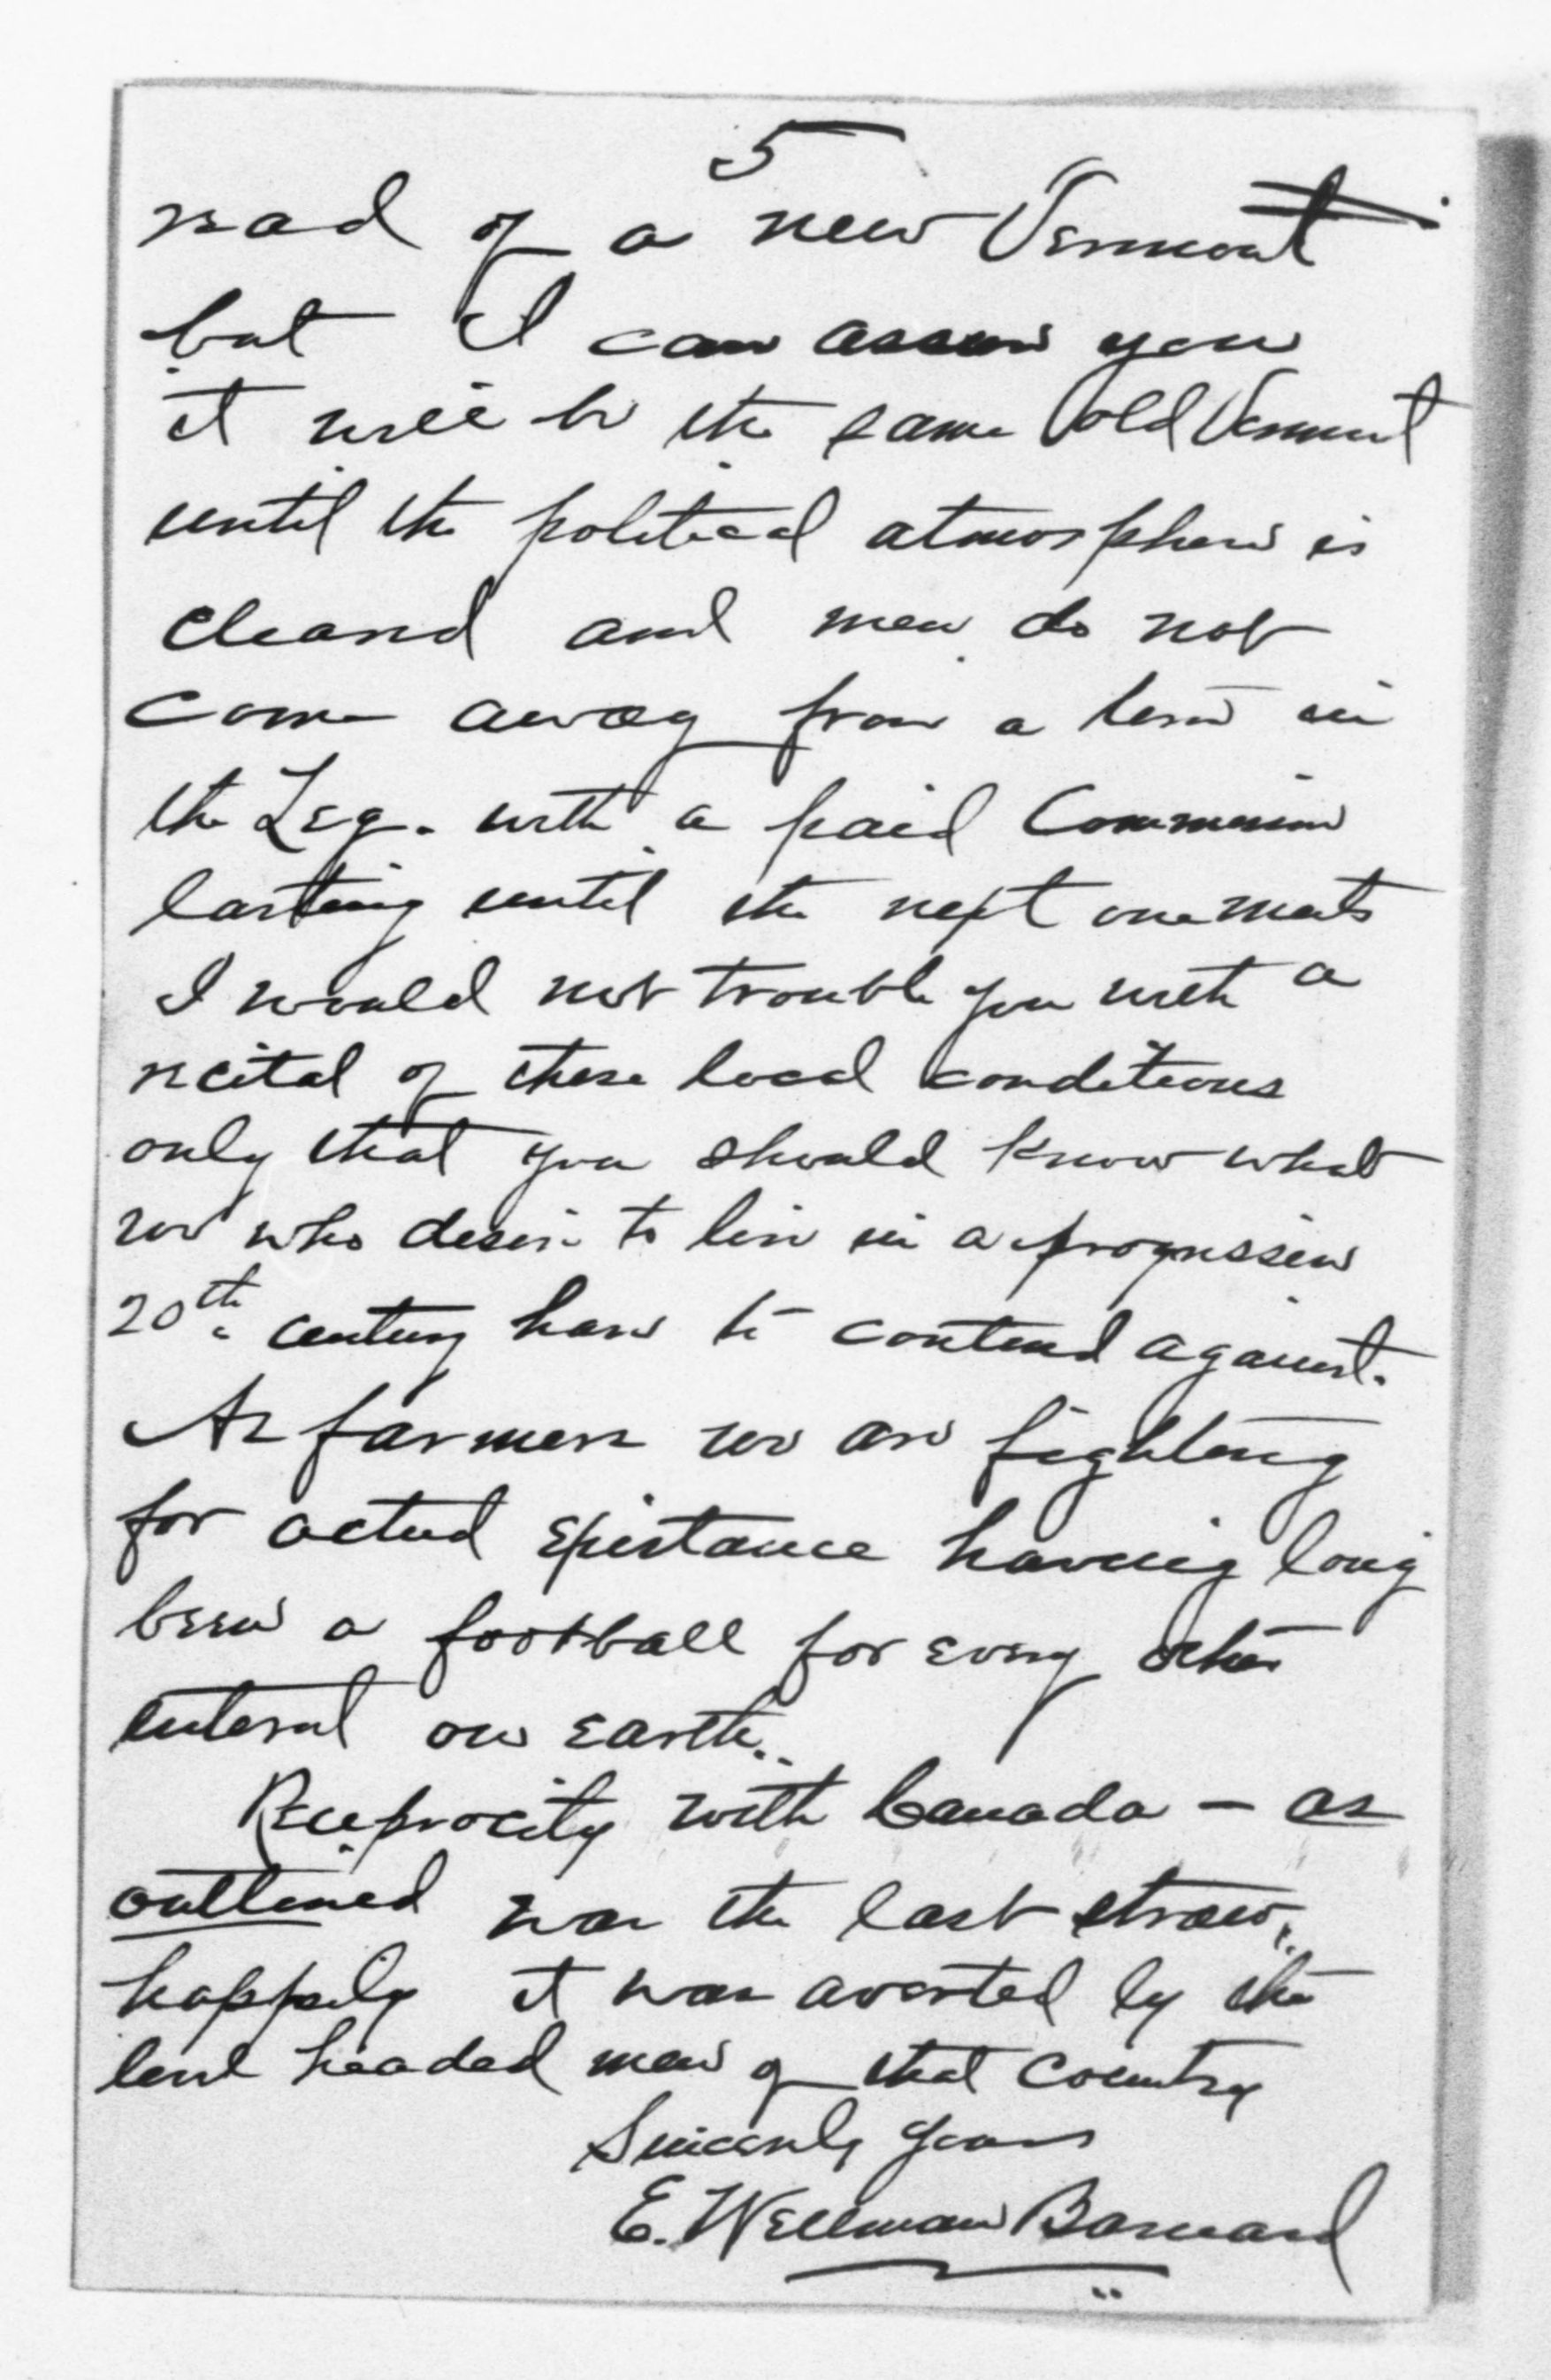 5
read of a new Vermont
but I can assure you
it will be the same old Vermont
until the political atmosphere is
cleared and men do not
come away from a term in
the Leg. with a paid Commission
lasting until the next one meets
I would not trouble you with a
recital of these local conditions
only that you should know what
we who desire to live in a progressive
20th century have to contend against.
As farmers we are fighting
for actual existance having long
been a football for every other
interest on earth.
Reciprocity with Canada - as
outlined was the last straw,
happily it was averted by the
level headed men of that country
Sincerely yours
E. Wellman Barnard